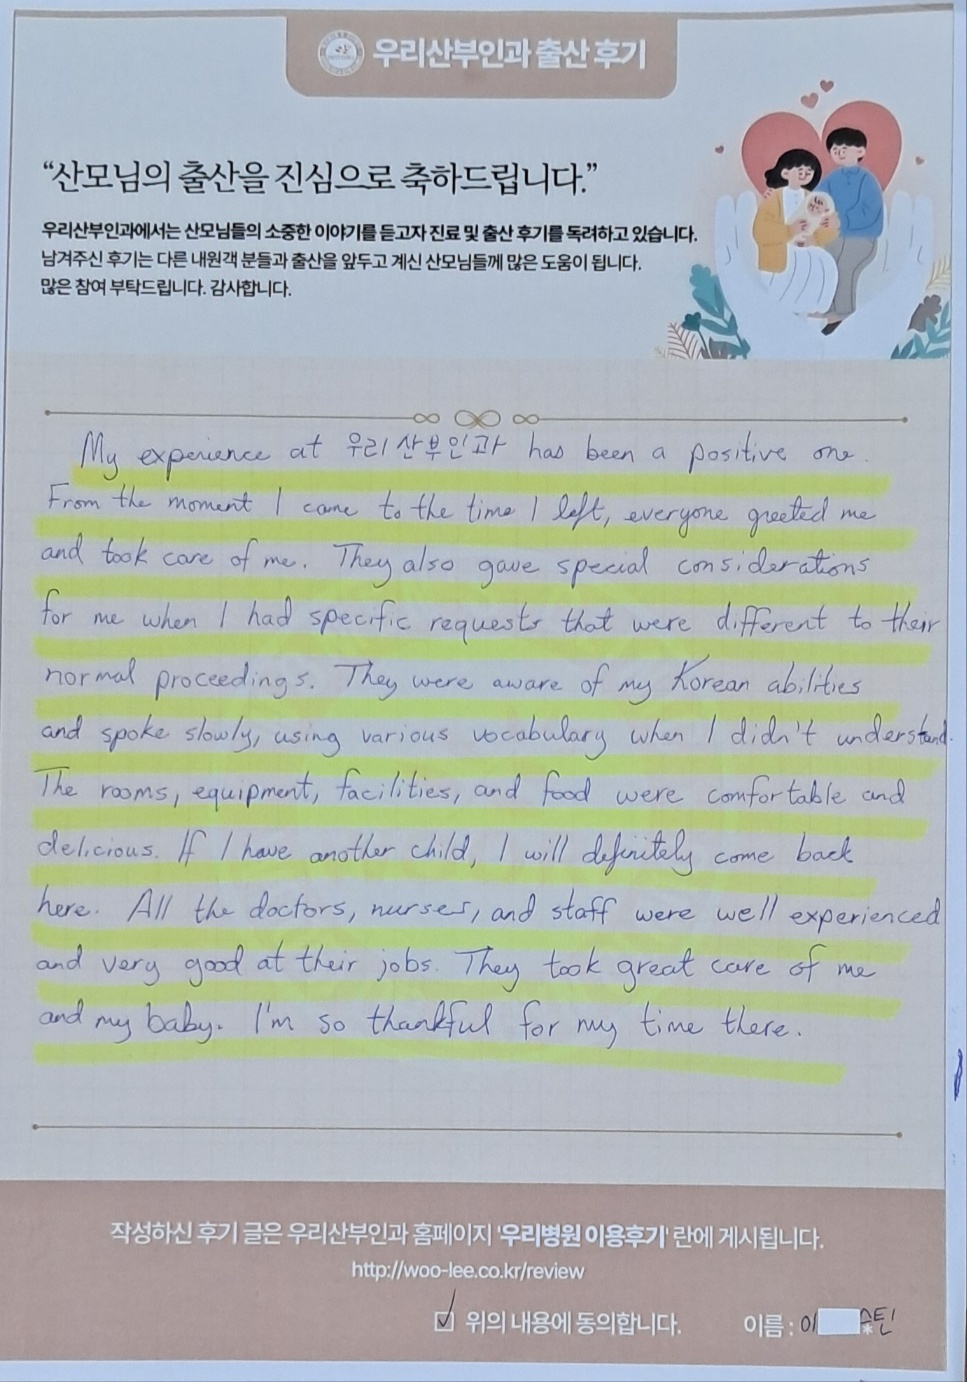 우리산부인과 출산 후기
“산모님의 출산을 진심으로 축하드립니다.”
우리산부인과에서는 산모님들의 소중한 이야기를 듣고자 진료 및 출산 후기를 독려하고 있습니다.
남겨주신 후기는 다른 내원객 분들과 출산을 앞두고 계신 산모님들께 많은 도움이 됩니다.
많은 참여 부탁드립니다. 감사합니다.
My experience at 우리산부인과 has been a positive one.
From the moment I came to the time I left, everyone greeted me
and took care of me. They also gave special considerations
for me when I had specific requests that were different to their
normal proceedings. They were aware of my Korean abilities
and spoke slowly, using various vocabulary when I didn't understand.
The rooms, equipment, facilities, and food were comfortable and
delicious. If I have another child, I will definitely come back
here. All the doctors, nurses, and staff were well experienced
and very good at their jobs. They took great care of me
and my baby. I'm so thankful for my time there.
작성하신 후기 글은 우리산부인과 홈페이지 '우리병원 이용후기' 란에 게시됩니다.
http://woo-lee.co.kr/review
위의 내용에 동의합니다. 이름 :